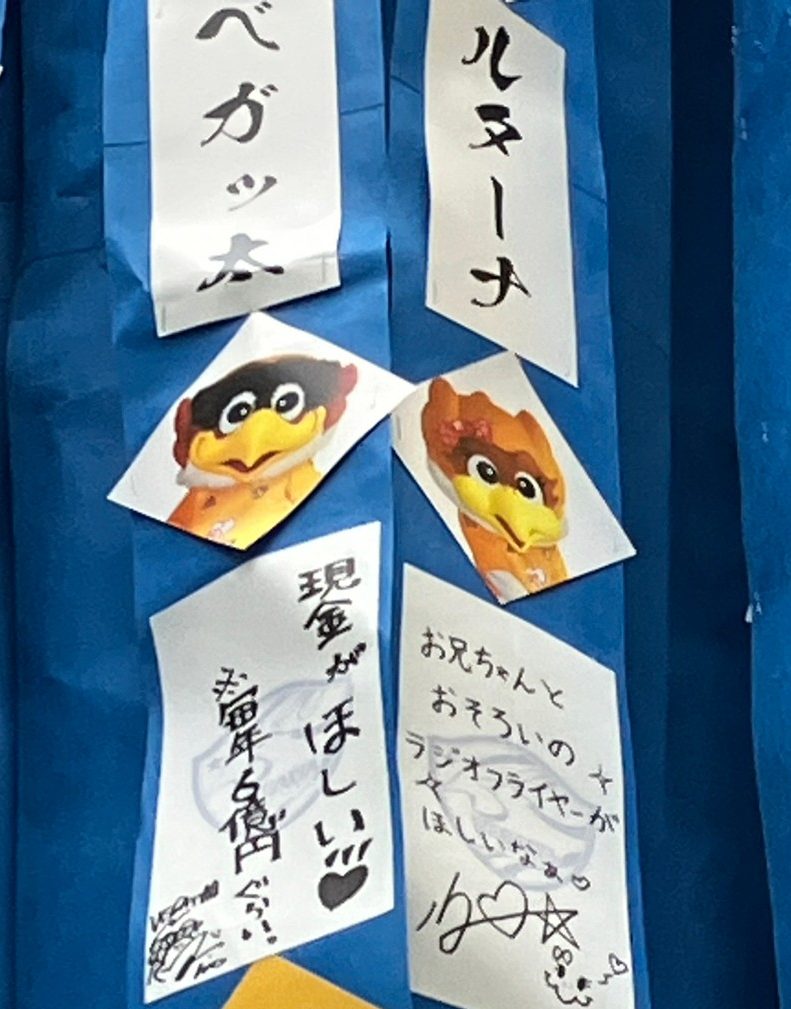 ベガッ太
ルヌーナ
現金がほしい!!!♥
※毎年6億円ぐらい。
お兄ちゃんと
おそろいの
☆ラジオフライヤー☆が
ほしいなぁ♡